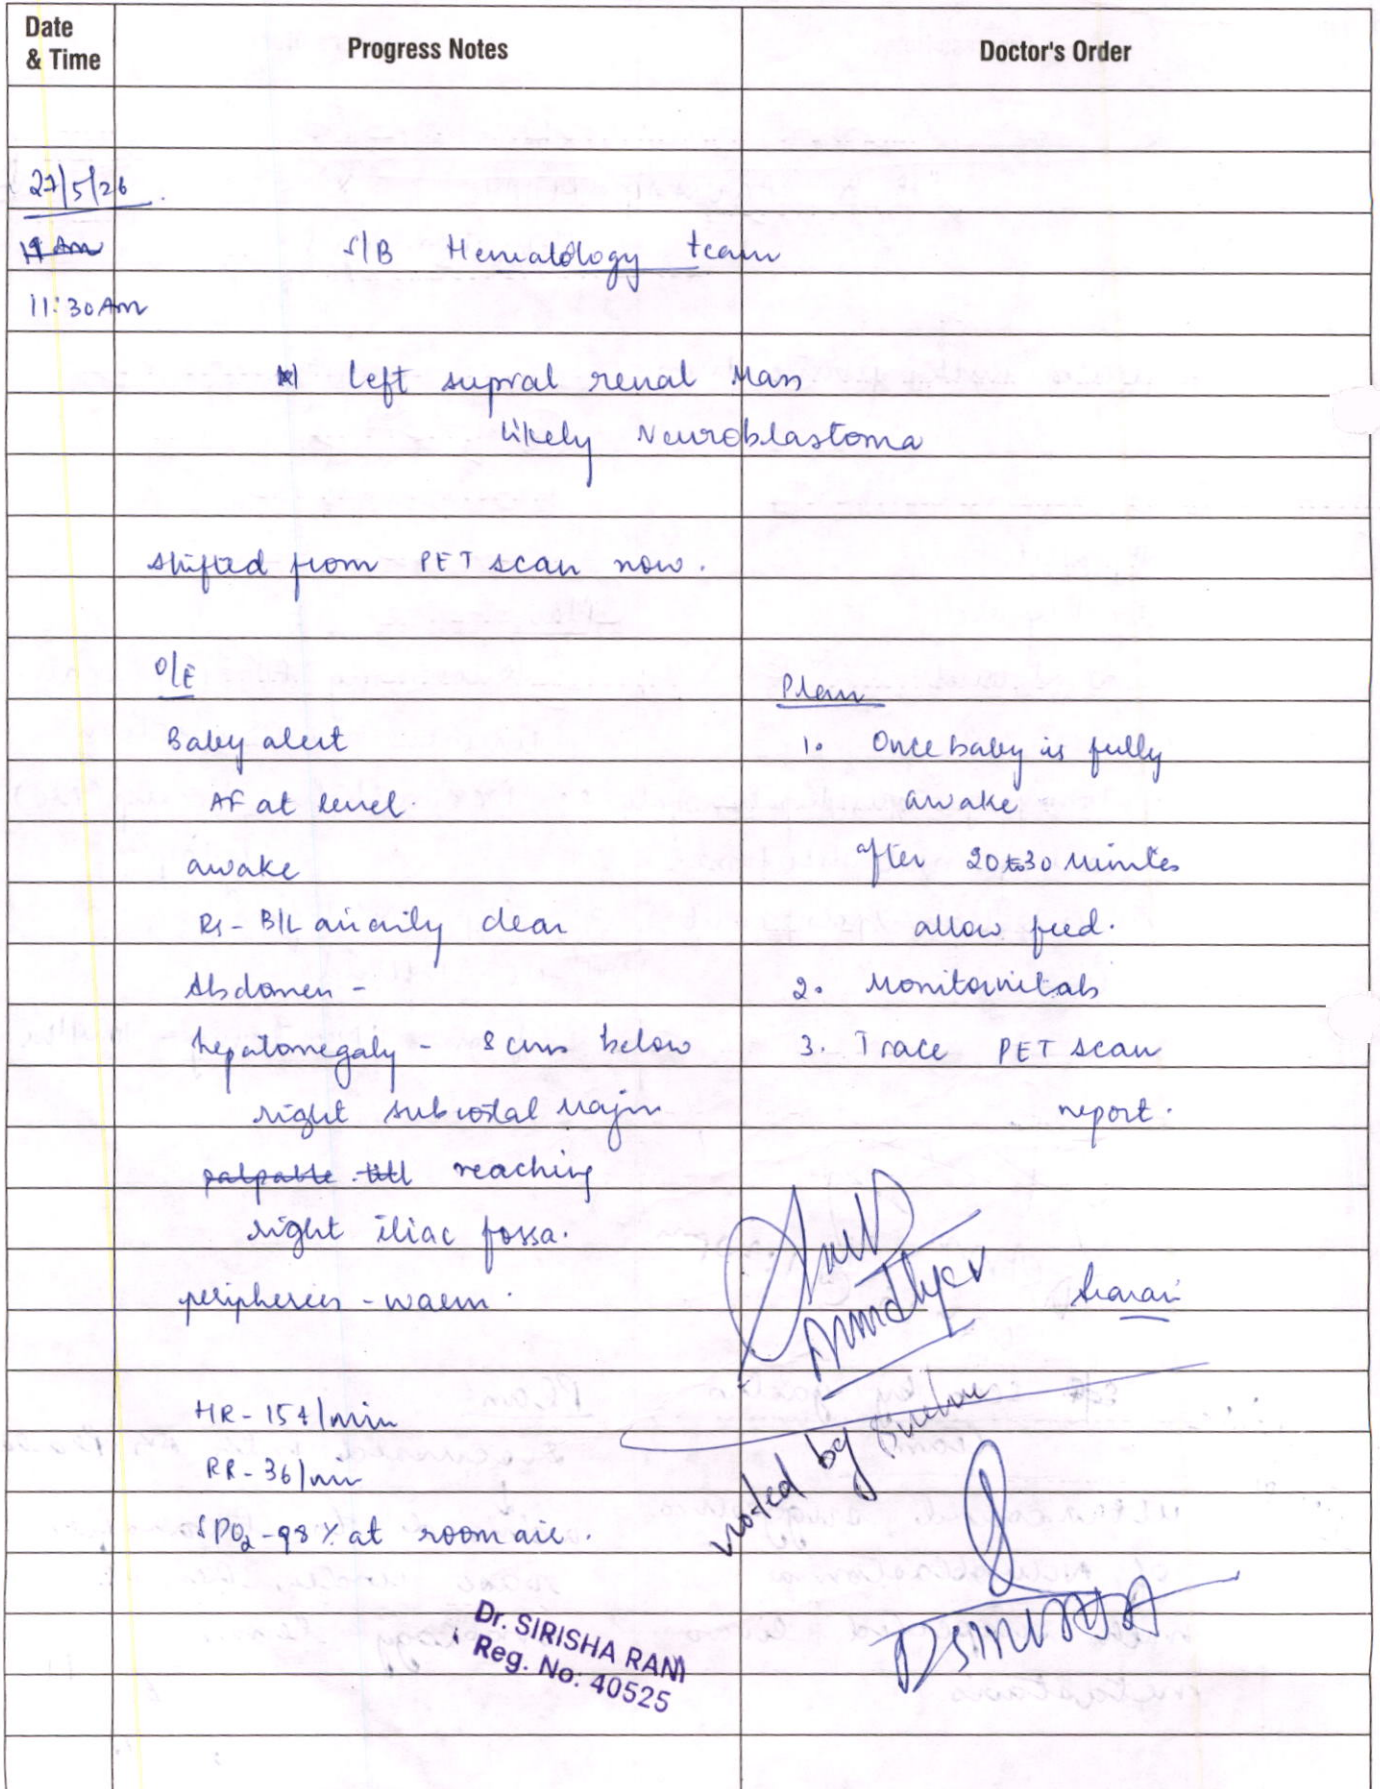 Date
& Time
Progress Notes
Doctor's Order
27/5/26
11 Am
11:30 Am
S/B Hematology team
left supral renal Mass
likely Neuroblastoma
shifted from PET scan now.
O/E
Baby alert
AF at level.
awake
RS - B/L air entry clear
Abdomen -
hepatomegaly - 8 cms below
right subcostal margin
palpable till reaching
right iliac fossa.
peripheries - warm.
HR - 154/min
RR - 36/min
SPO2 - 98 % at room air.
Dr. SIRISHA RANI
Reg. No: 40525
Plan
1. Once baby is fully
awake
after 20 to 30 minutes
allow feed.
2. Monitor vitals
3. Trace PET scan
report.
noted by